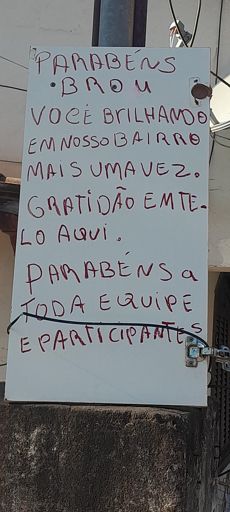 PARABÉNS
BROU
VOCÊ BRILHANDO
EM NOSSO BAIRRO
MAIS UMA VEZ.
GRATIDÃO EM TE-
LO AQUI.
PARABÉNS a
TODA EQUIPE
E PARTICIPANTES